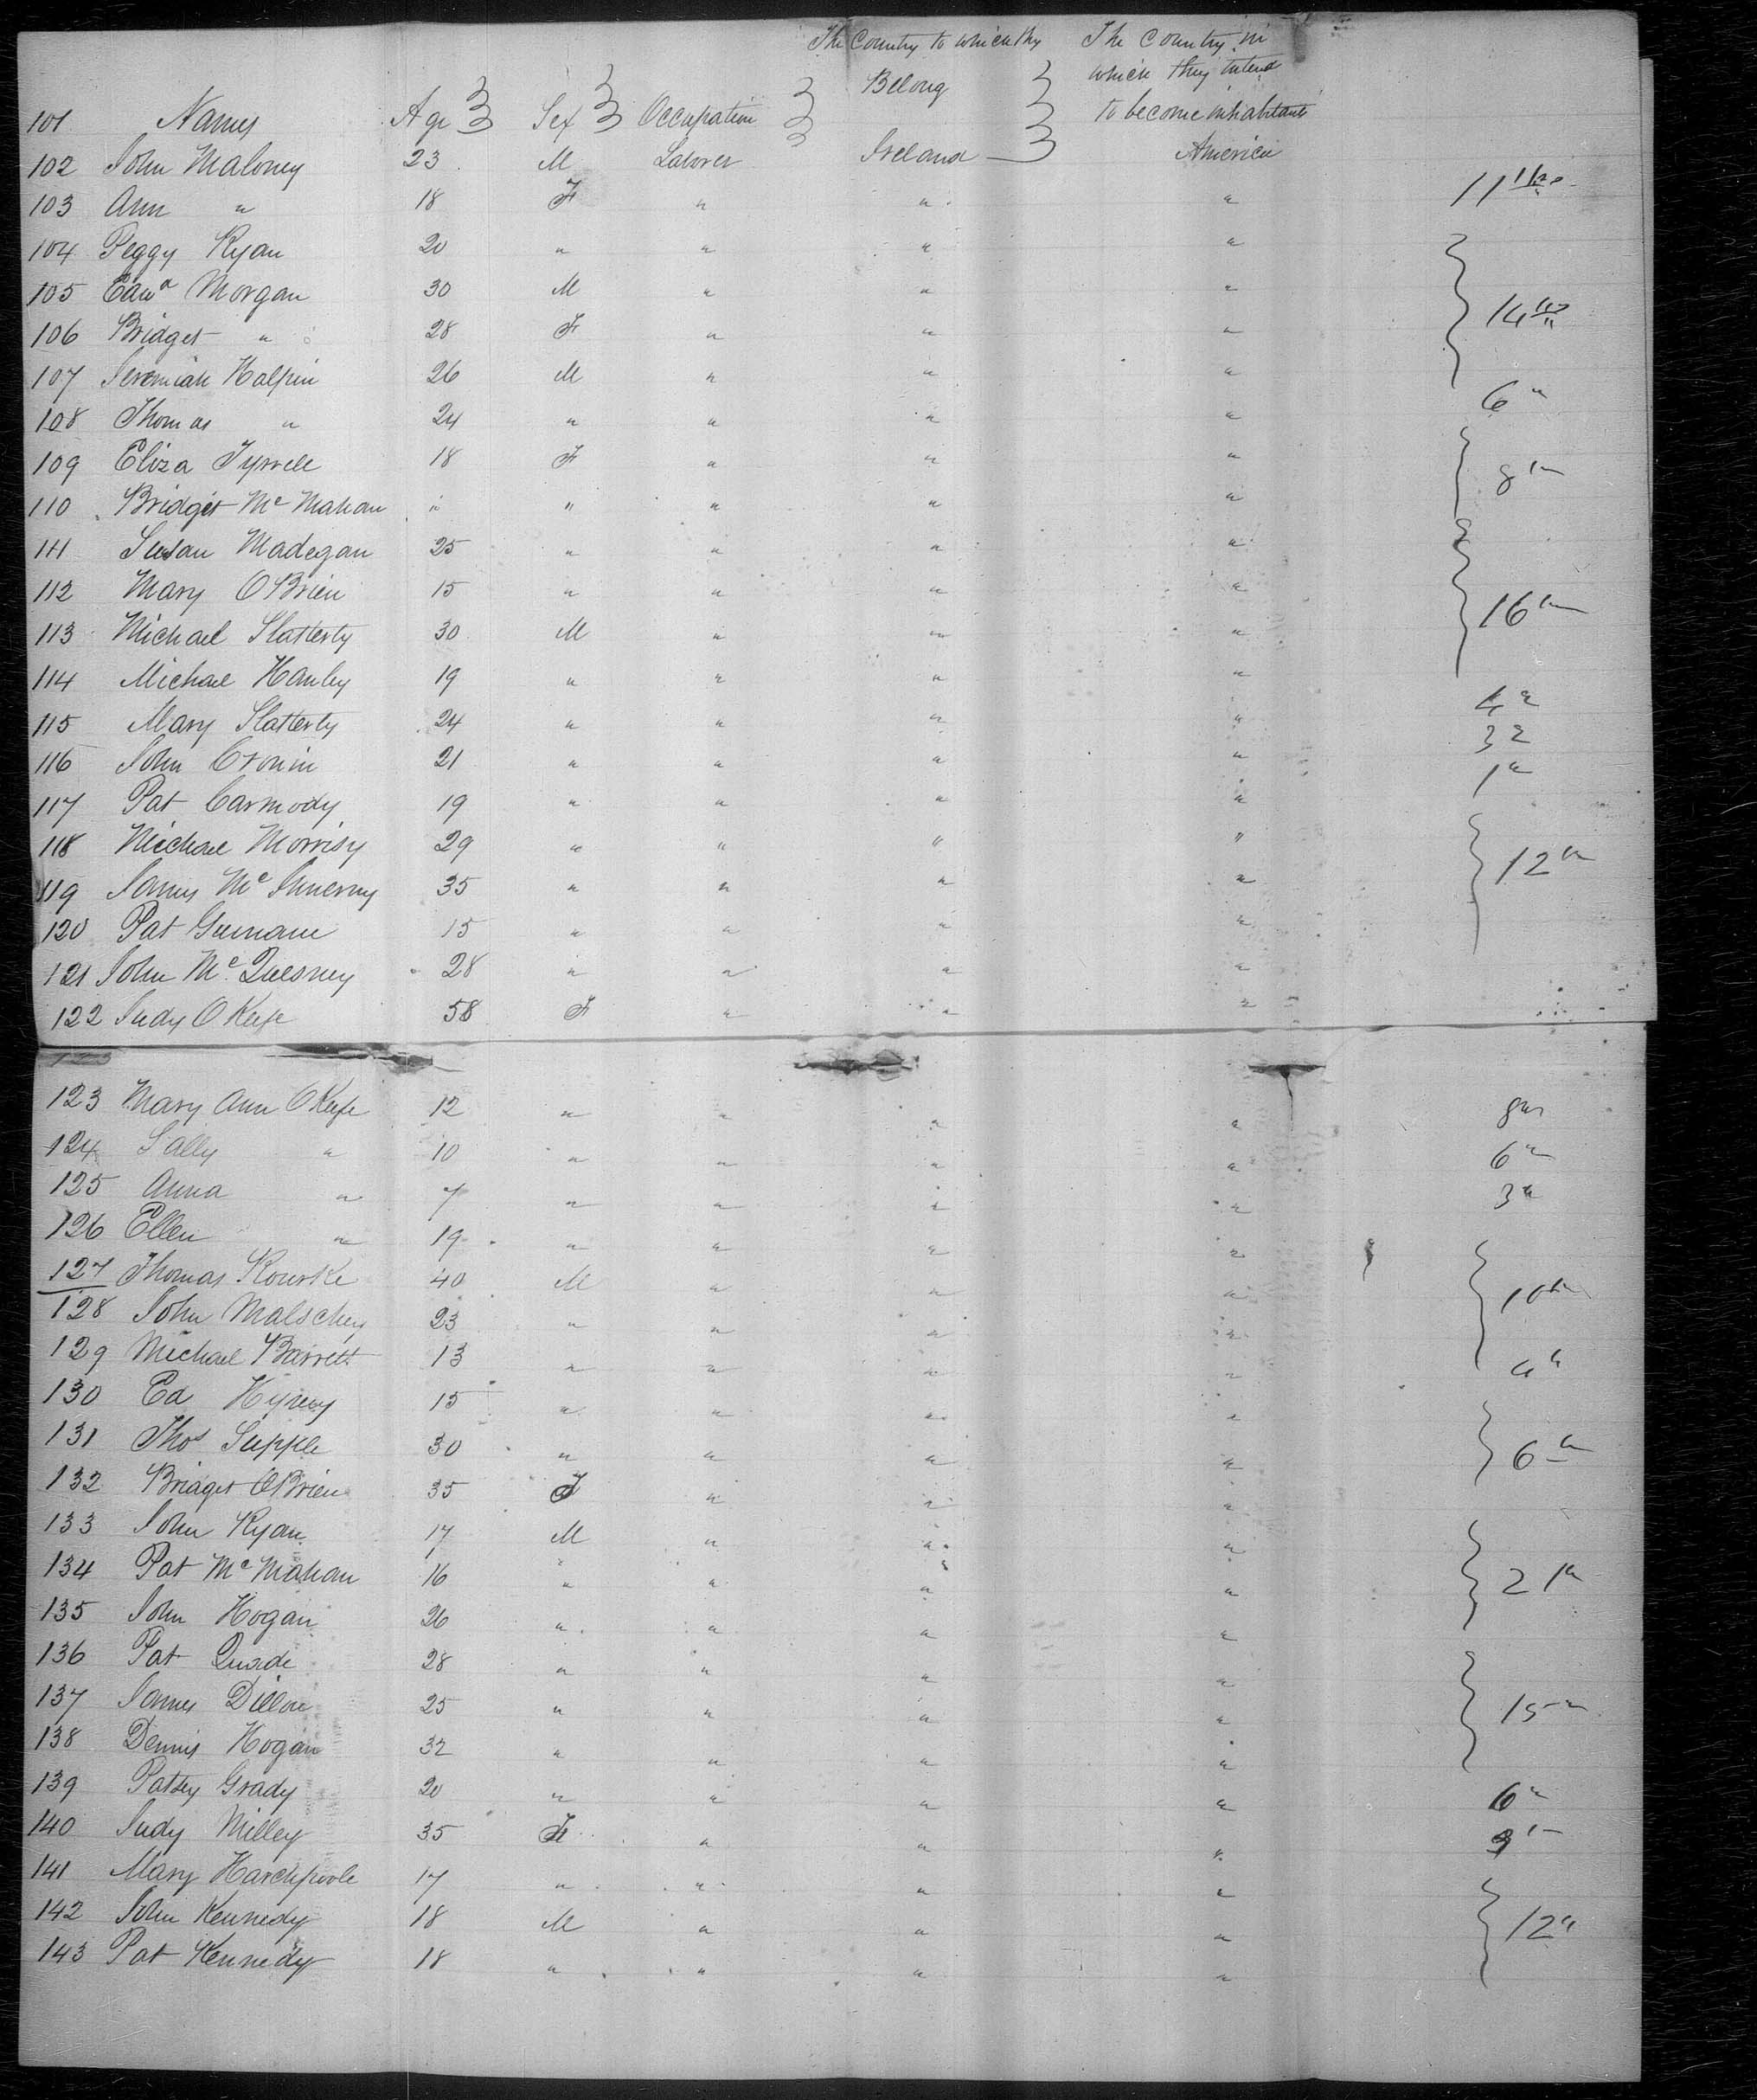 The Country to which they The Country in
Belong which they intend
101 Names Age Sex Occupation to become inhabitants
102 John Maloney 23 M Laborer Ireland America
103 Ann " 18 F " " " 11
104 Peggy Ryan 20 " " " "
105 Edwd Morgan 30 M " " " 14
106 Bridget " 28 F " " "
107 Jeremiah Halpin 26 M " " "
108 Thomas " 24 " " " " 6 "
109 Eliza Tyrrell 18 F " " " 8 "
110 Bridget Mc Mahan " " " " "
111 Susan Madegan 25 " " " "
112 Mary OBrien 15 " " " "
113 Michael Slatterly 30 M " " " 16 "
114 Michael Hanley 19 " " " "
115 Mary Slatterly 24 " " " " 4 "
116 John Cronin 21 " " " " 3 "
117 Pat Carmody 19 " " " " 1 "
118 Michael Morrisy 29 " " " " 12 "
119 James Mc Innerny 35 " " " "
120 Pat 15 " " " "
121 John Mc 28 " " " "
122 Judy OKeefe 58 F " " "
123
123 Mary Ann OKeefe 12 " " " " 8 "
124 Sally " 10 " " " " 6 "
125 Anna " 7 " " " " 3 "
126 Ellen " 19 " " " "
127 Thomas Rourke 40 M " " " 10 "
128 John 23 " " " "
129 Michael Barrett 13 " " " " 4 "
130 Ed 15 " " " "
131 Thos Supple 30 " " " " 6 "
132 Bridget OBrien 35 F " " "
133 John Ryan 17 M " " "
134 Pat Mc Mahan 16 " " " " 21 "
135 John Hogan 26 " " " "
136 Pat Quade 28 " " " "
137 James Dillon 25 " " " " 15 "
138 Dennis Hogan 32 " " " "
139 Patsey Grady 20 " " " " 6 "
140 Judy Milley 35 F " " " 3 "
141 Mary Harchpoole 17 " " " "
142 John Kennedy 18 M " " " 12 "
143 Pat Kennedy 18 " " " "